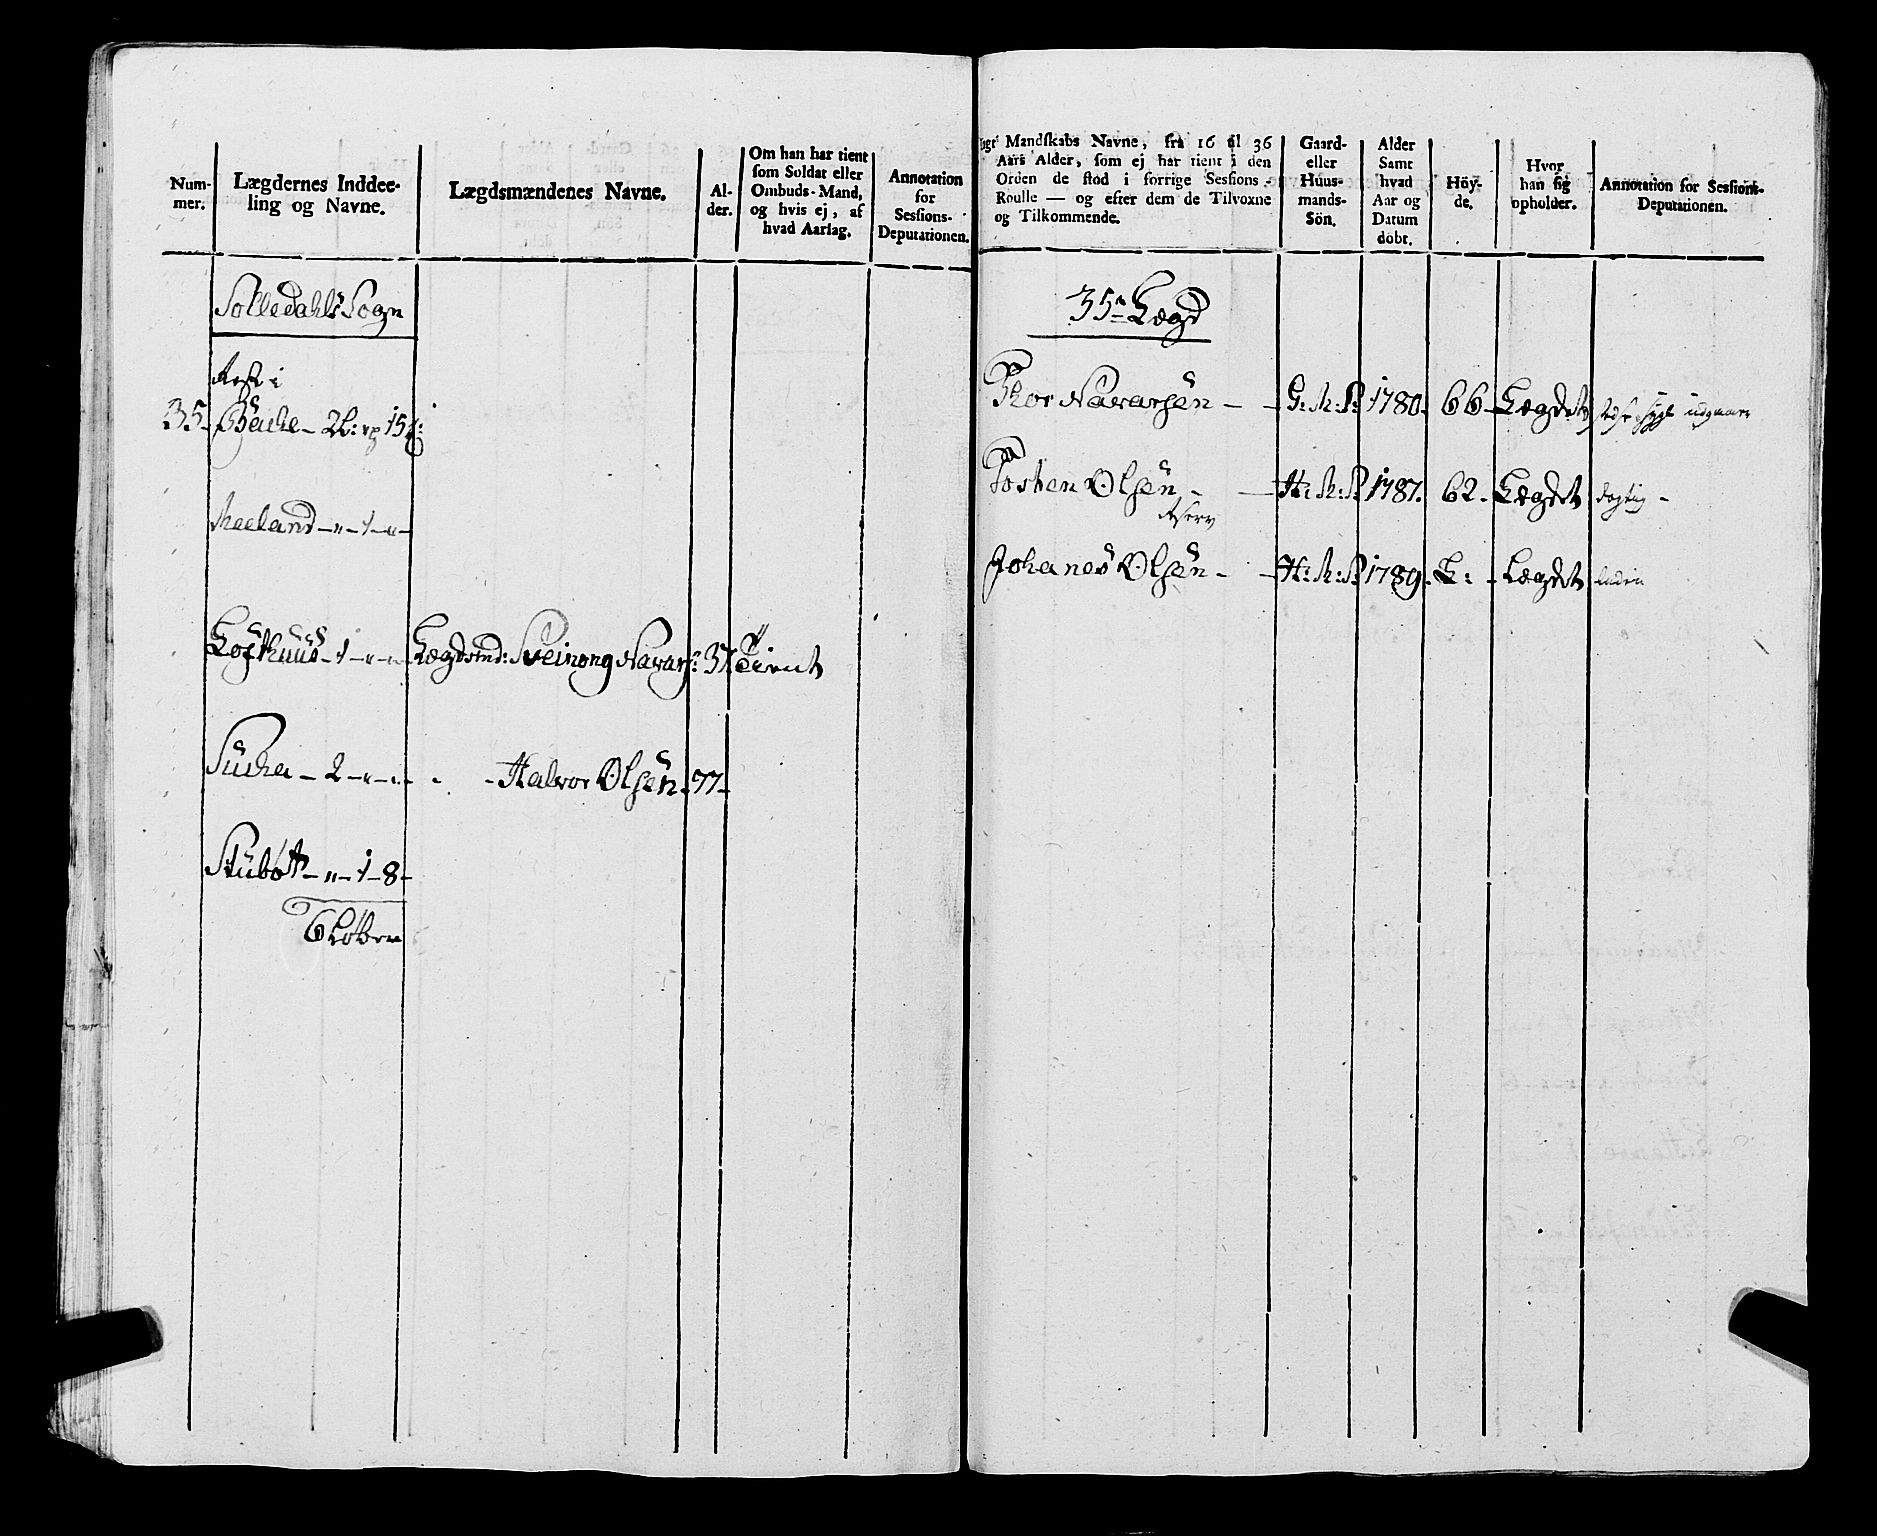 Num-
mer.
Lægdernes Inddee-
ling og Navne.
Lægdsmændenes Navne.
Al-
der.
Om han har tient
som Soldat eller
Ombuds-Mand,
og hvis ej, af
hvad Aarsag.
Annotation
for
Sessions-
Deputationen.
Solledahls Sogn
Rest i
35. Bache - 2
Meeland - " - 1 - " -
Lofthuus - 1 - " - " - Lægdsmd: Sveinong Navars: 37. Tient
- 2 - " - " - Halvor Olsen - 77 -
- " - 1 - 8 -
6
ngt Mandskabs Navne, fra 16 til 36
Aars Alder, som ej har tient i den
Orden de stod i forrige Sessions-
Roulle — og efter dem de Tilvoxne
og Tilkommende.
Gaard-
eller
Huus-
mands-
Sön.
Alder
Samt
hvad
Aar og
Datum
döbt.
Höy-
de.
Hvor
han sig
opholder.
Annotation for Sessions-
Deputationen.
35te Lægd
Thor Navarsen - - G: M: S: 1780. 66 - Lægdet
Tosten Olsen - - H: M: S: 1787. 62 - Lægdet dygtig -
Johanes Olsen - - H: M: S: 1789. L: - Lægdet liden